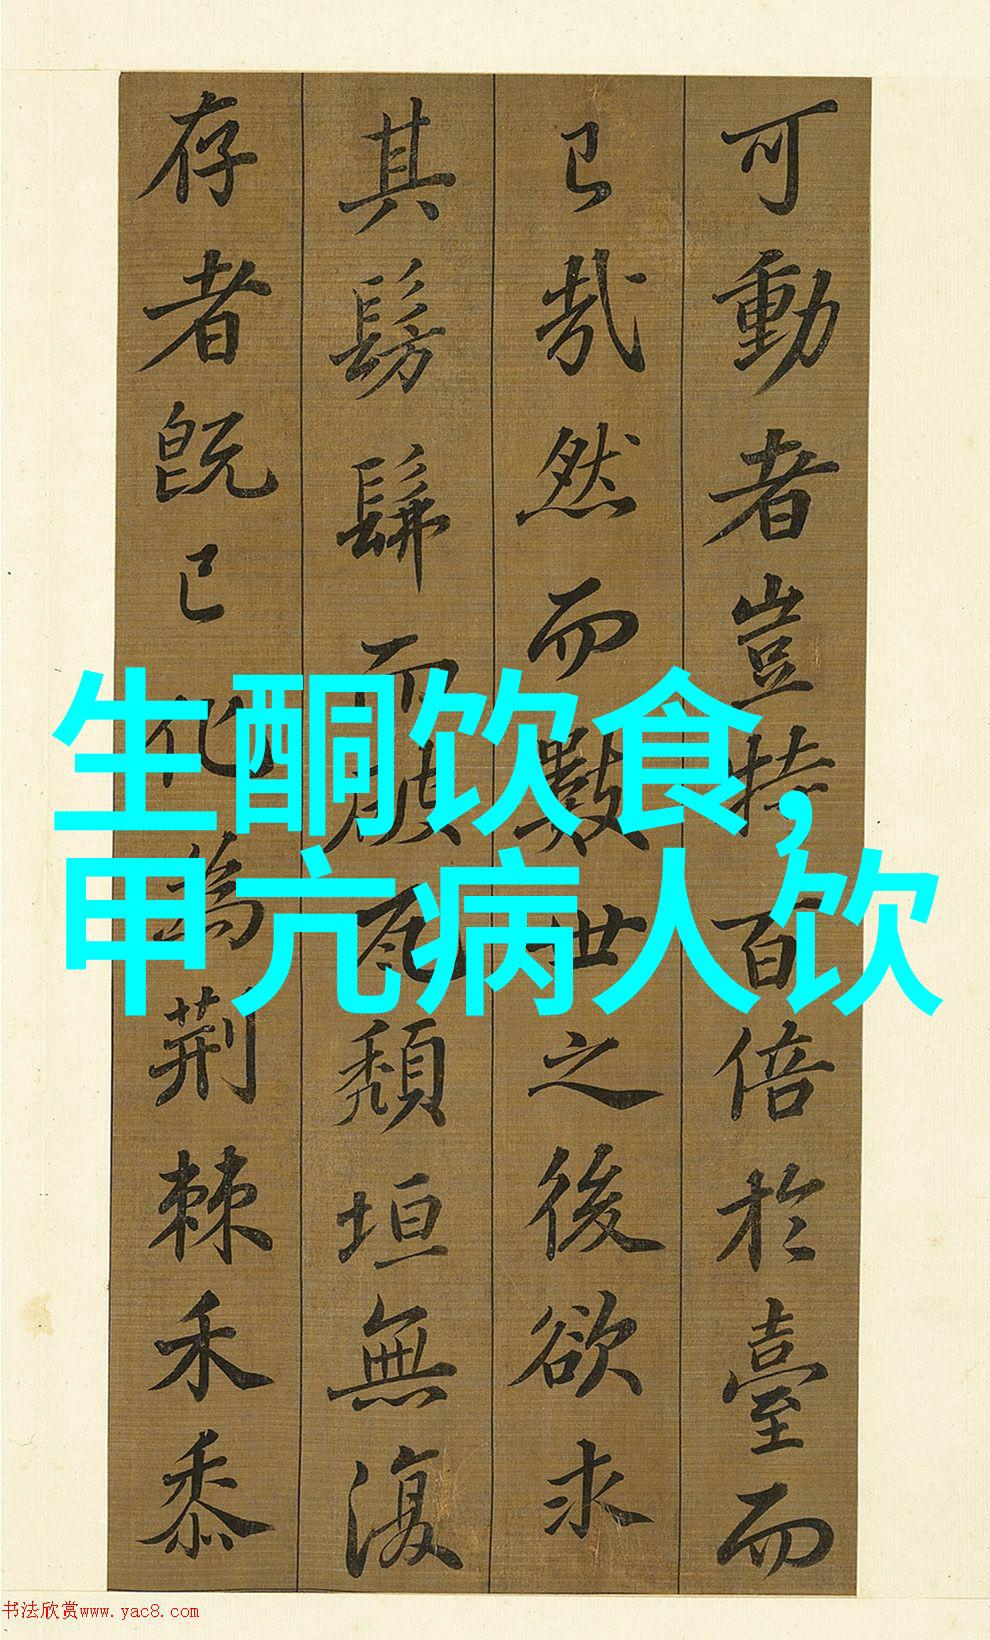 可動者豈特百倍於臺而
已哉然而數世之後欲求
其髣髴而破瓦頹垣無復
存者既已化為荊棘禾黍
生酮饮食，
甲亢病人饮
书法欣赏www.yac8.com